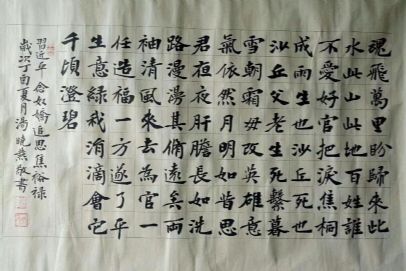 魂飛萬里盼歸來此
水此山此地百姓誰
不愛好官把淚焦桐
成雨生也沙丘死也
沙丘父老生死繫暮
雪朝霜毋改英雄意
氣依然月明如昔思
君夜夜肝膽長如洗
路漫漫其脩遠矣兩
袖清風來去為官一
任造福一方遂了平
生意綠我涓滴會它
千頃澄碧
習近平 念奴嬌追思焦裕祿
歲次丁酉夏月湯曉燕敬書